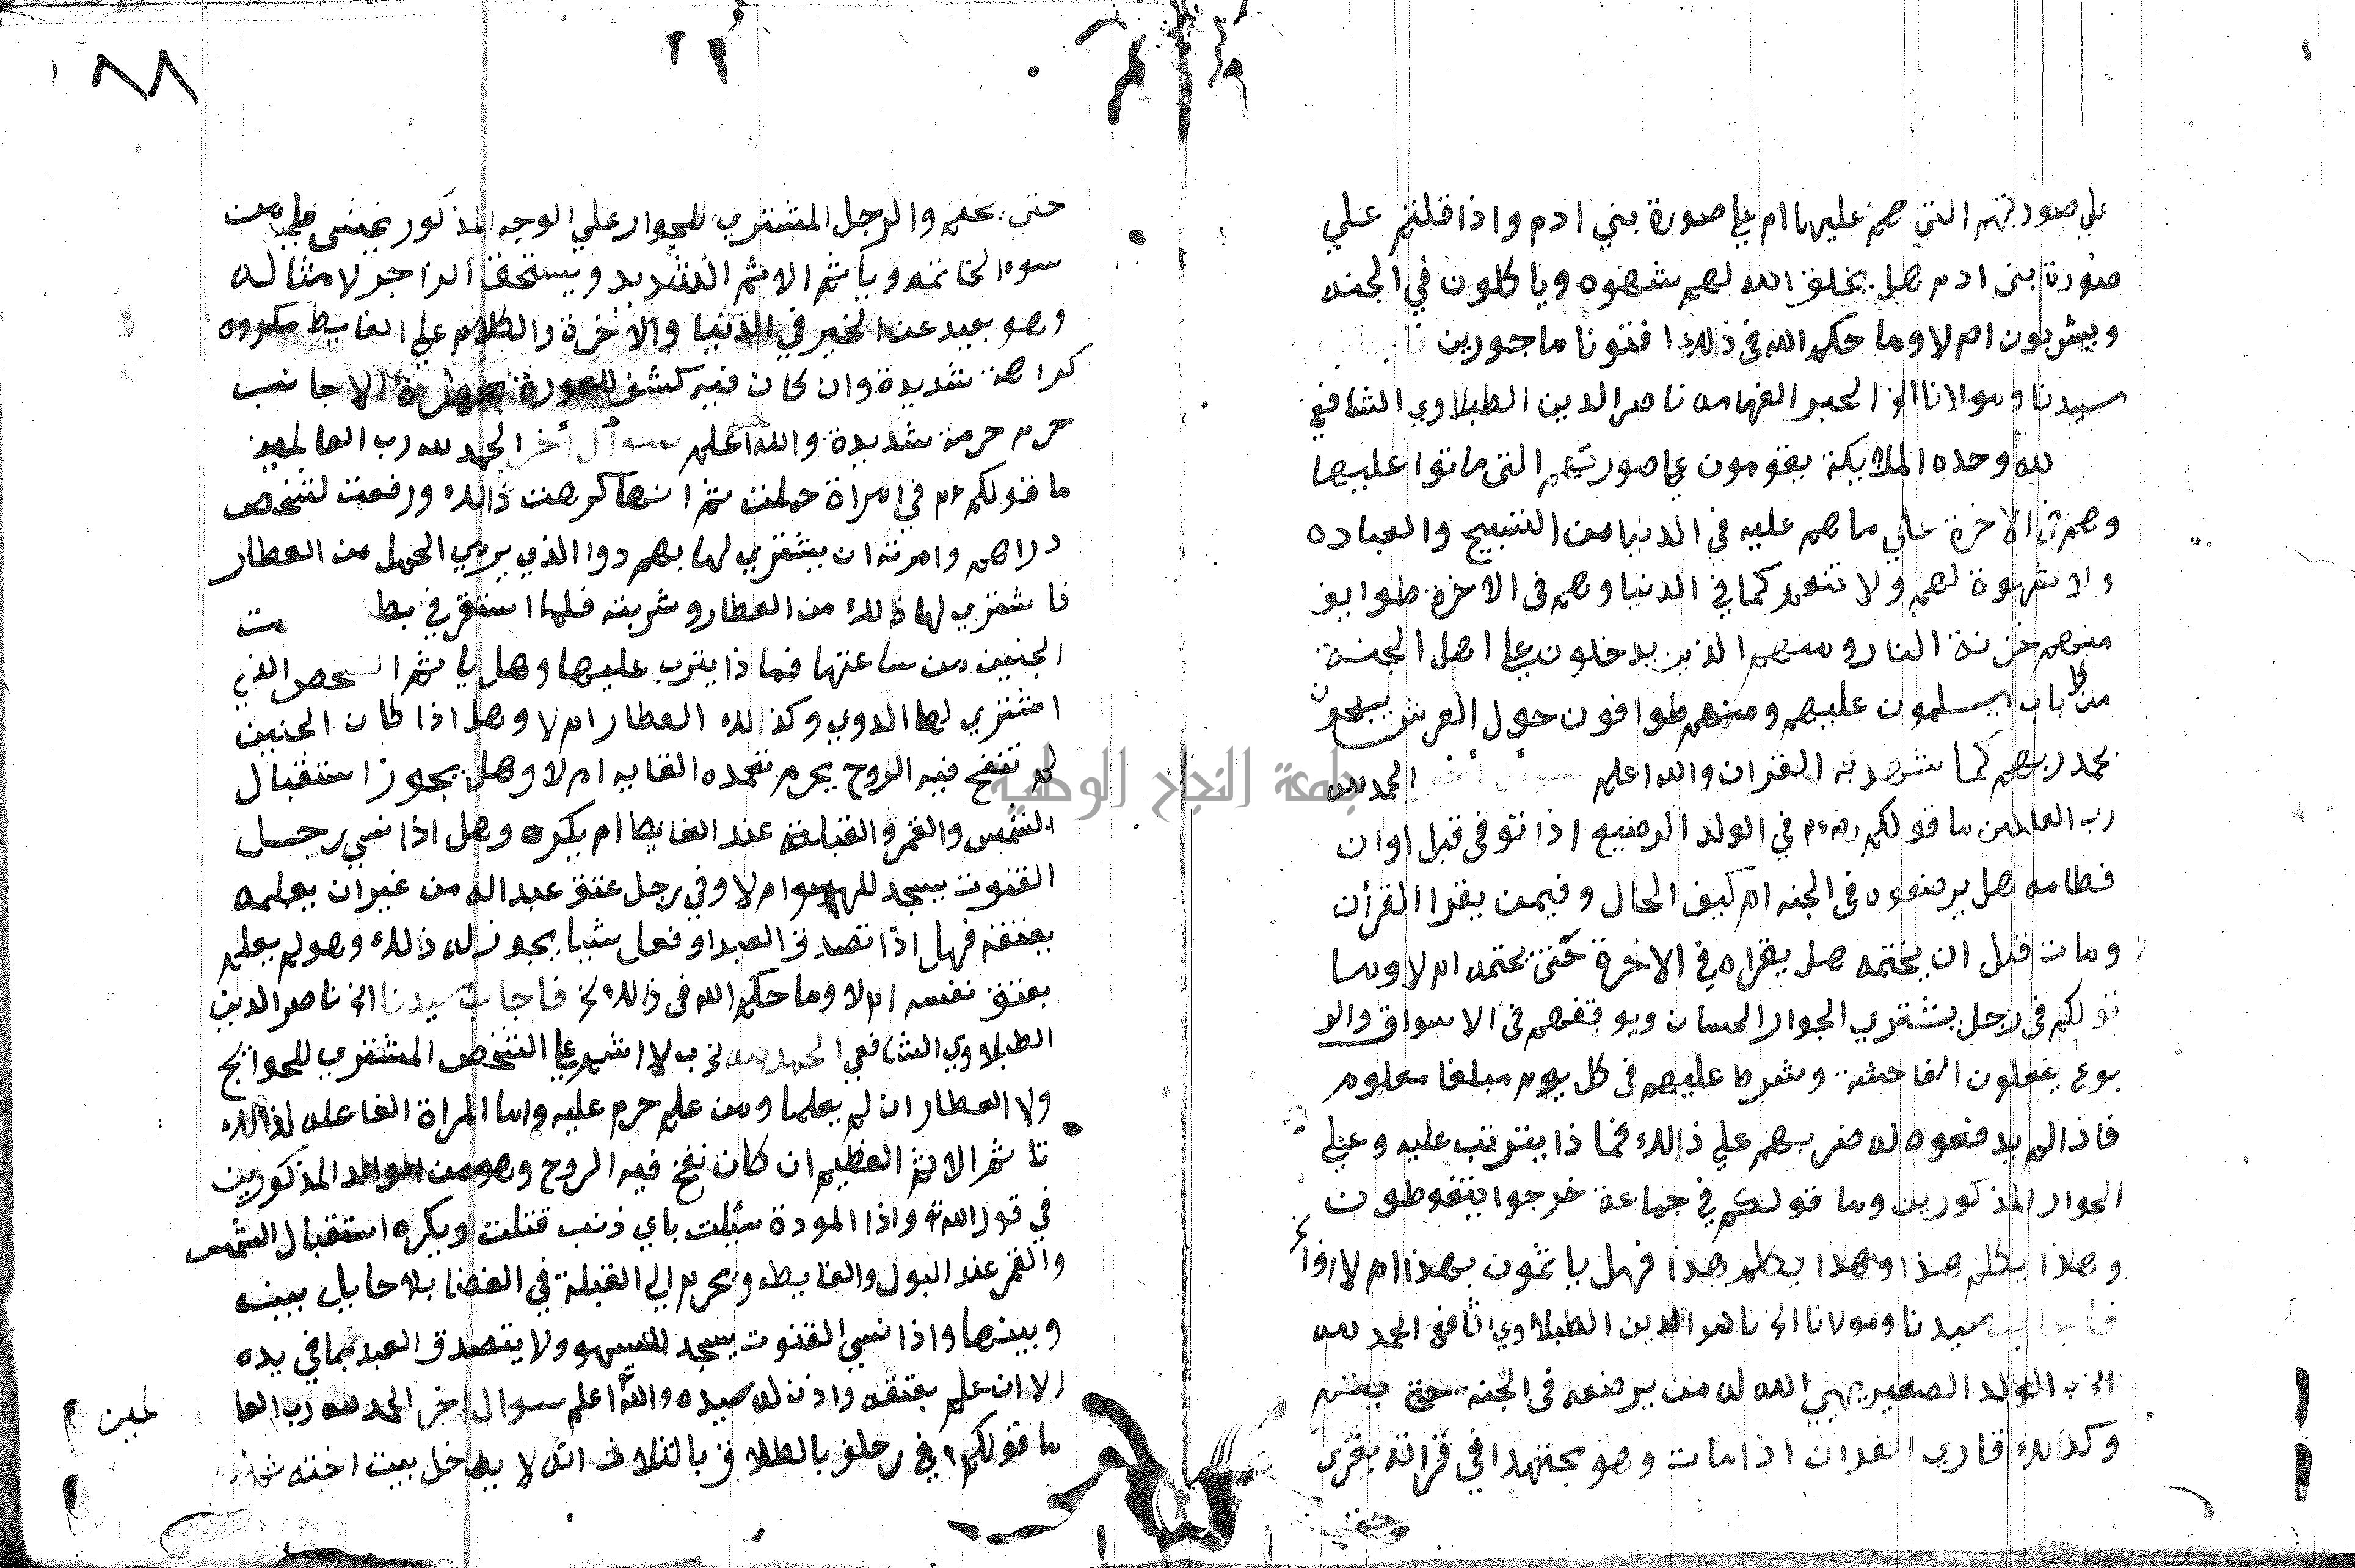 علي صورتهم التي هم عليها ام علي صورة بني ادم واذا قلتم علي
صورة بني ادم هل يخلق الله لهم شهوه وياكلون في الجنه
ويشربون ام لا وما حكم الله في ذلك افتونا ماجورين
سيدنا ومولانا الخ الحبر الفهامه ناصر الدين الطبلاوي الشافعي
لله وحده الملايكة يقومون علي صورتهم التي ماتوا عليها
وهم في الاخرة علي ما هم عليه في الدنيا من التسبيح والعباده
ولا شهوة لهم ولا تتعد كما في الدنيا وهم في الاخرة طوايف
منهم خزنة النار ومنهم الذين يدخلون علي اهل الجنة
من كل باب يسلمون عليهم ومنهم طوافون حول العرش يسبحون
بحمد ربهم كما شهد به القران والله اعلم سوال أخر الحمد لله
رب العالمين ما قولكم رضيم في الولد الرضيع اذا توفي قبل اوان
فطامه هل يرضعوه في الجنه ام كيف الحال وفيمن يقرا القرأن
ومات قبل ان يختمه هل يقراه في الاخرة حتي يختمه ام لا وما
قولكم في رجل يشتري الجوار الحسان ويوقفهم في الاسواق والر
بوع يفعلون الفاحشة وشرط عليهم في كل يوم مبلغا معلوم
فاذا لم يدفعوه له ضربهم علي ذالك فماذا يترتب عليه وعلي
الجوار المذكورين وما قولكم في جماعة خرجوا يتغوطون
وهذا يكلم هذا وهذا يكلم هذا فهل ياثمون بهذا ام لا
فاجاب سيدنا ومولانا الخ ناصر الدين الطبلاوي الشافعي الحمد لله
الخ الولد الصغير يهيي الله له من يرضعه في الجنه حتي
وكذالك قاري القران اذا مات وهو مجتهدا في قراته يقري
حتي
٨٨
حتي يختم والرجل المشتري للجوار علي الوجه المذكور يخشي عليه من
سوء الخاتمه وياثم الاثم الشديد ويستحق الزاجر لامثاله
وهو بعيد عن الخير في الدنيا والاخرة والكلام علي الغايط مكروه
كراهة شديدة وان كان فيه كشف للعورة بحضرة الاجانب
حرم حرمة شديدة والله اعلم سوأل أخر الحمد لله رب العالمين
ما قولكم رضيم في امراة حملت ثم انها كرهت ذالك ورفعت لشخص
دراهم وامرته ان يشتري لها بهم دوا الذي يرمي الحمل من العطار
فاشتري لها ذالك من العطار وشربته فلما استقر في بطـ ـت
الجنين من ساعتها فماذا يترب عليها وهل ياثم الشخص الذي
اشتري لها الدوي وكذالك العطار ام لا وهل اذا كان الجنين
لم تنفخ فيه الروح يحرم تتعمده القايه ام لا وهل يجوز استقبال
الشمس والقمر والقبلة عند الغايط ام يكره وهل اذا نسي رجل
القنوت يسجد للسهو ام لا وفي رجل عتق عبدا له من غير ان يعلمه
بعتقه فهل اذا تصدق العبد او فعل شيا يجوز له ذالك وهو لم يعلم
بعتق نفسه ام لا وما حكم الله في ذالك الخ فاجاب سيدنا الخ ناصر الدين
الطبلاوي الشافعي الحمد لله رب لا اثم علي الشخص المشتري للحوايج
ولا العطار ان لم يعلما ومن علم حرم عليه واما المراة الفاعله لذالك
تاثم الاثم العظيم ان كان نفخ فيه الروح وهو من الوالد المذكورين
في قول الله تع واذا المودة سئلت باي ذنب قتلت ويكره استقبال الشمس
والقمر عند البول والغايط ويحرم الي القبلة في الفضا بلا حايل بينه
وبينها واذا نسي القنوت يسجد للسهو ولا يتصدق العبد بما في يده
الا ان علم بعتقه واذن له سيده والله اعلم سوال اخر الحمد لله رب العا
لمين
ما قولكم رضي في رحلف بالطلاق بالثلاث انه لا يدخل بيت اخته
جامعة النجاح الوطنية